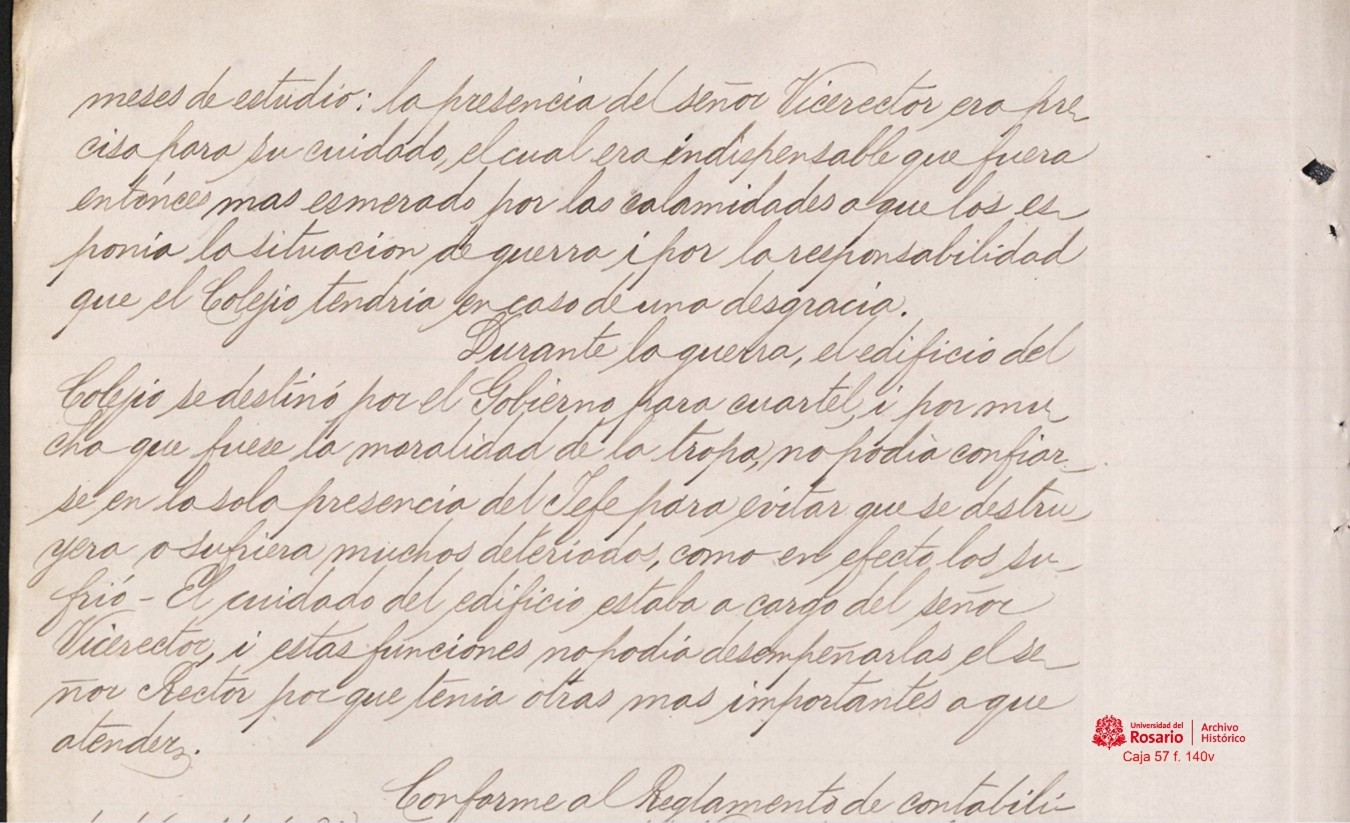 meses de estudio: la presencia del señor Vicerector era pre-
ciso para su cuidado, el cual era indispensable que fuera
entónces mas esmerado por las calamidades a que los es-
ponia la situacion de guerra i por la responsabilidad
que el Colejio tendria en caso de una desgracia.
Durante la guerra, el edificio del
Colejio se destinó por el Gobierno para cuartel, i por mu-
cha que fuese la moralidad de la tropa, no podia confiar-
se en la sola presencia del Jefe para evitar que se destru-
yera o sufriera muchos deteriodos, como en efecto los su-
frió - El cuidado del edificio estaba a cargo del señor
Vicerector, i estas funciones no podia desempeñarlas el se-
ñor Rector por que tenia otras mas importantes a que
atender.
Conforme al Reglamento de contabili-
Universidad del
Rosario
Archivo
Histórico
Caja 57 f. 140v